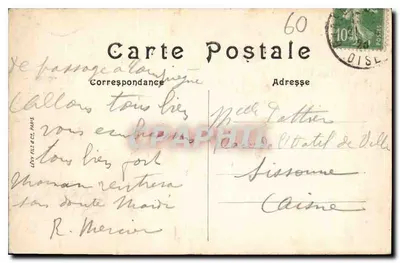 60
Carte Postale
Correspondance
Adresse
10c
OISE
de passage à Compiègne
allons tous bien
vous embrassons
tous bien fort
Maman rentrera
sans doute Mardi
R. Mercier
Hotel de Ville
Sissonne
Aisne
LÉVY FILS & Cie, PARIS